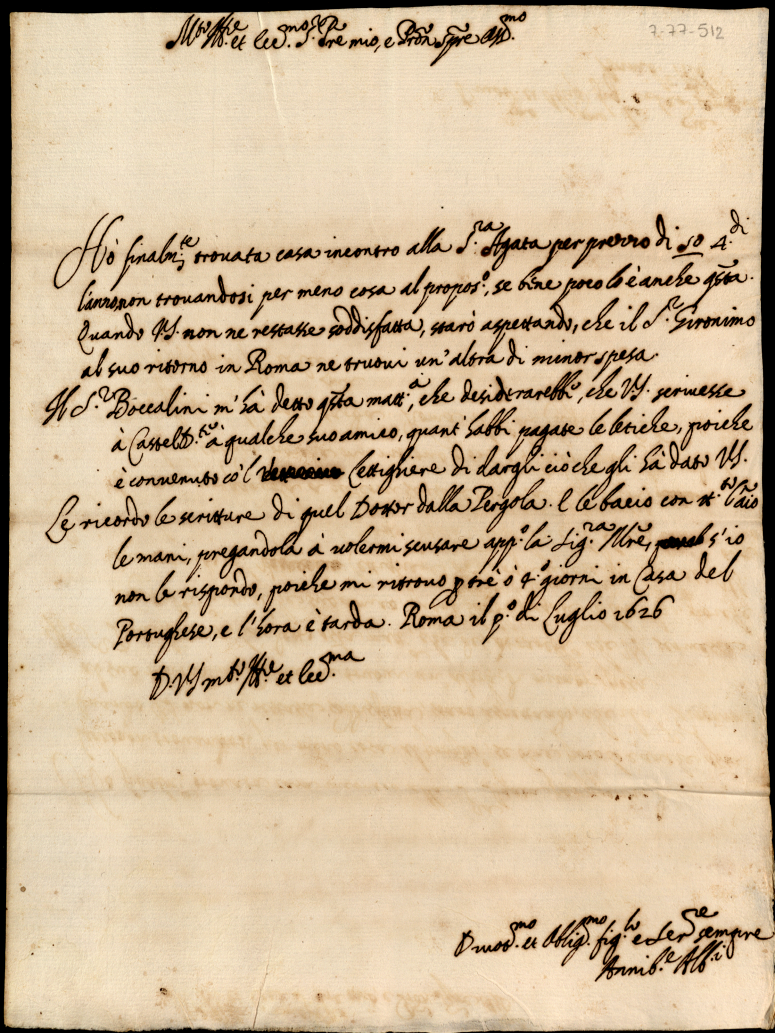 7-77-512
M.to Ill.re et Ecc.mo S.r P.re mio, e Pron sempre Oss.mo
Hò finalm.te trovata casa incontro alla S.ra Agata per prezzo di 50 4.di
l'anno non trovandosi per meno cosa al propos.o, se bene poco lo è anche q.sta.
Quando VS. non ne restasse soddisfatta, starò aspettando, che il S.r Gironimo
al suo ritorno in Roma ne truovi un'altra di minor spesa.
Il S.r Boccalini m'hà detto q.sta matt.a, che desidrarebbe, che VS. scrivesse
à Castel D.te à qualche suo amico, quant'habbi pagate le letiche, poiche
è convenuto cò l Lettighiere di dargli ciò che gli hà dato VS.
Le ricordo le scritture di quel Dottor dalla Pergola. E le bacio con ogni
le mani, pregandola à volermi scusare app.o la Sig.ra M.re, s'io
non le rispondo, poiche mi ritrovo p tre ò 4.o giorni in Casa del
Portughese, e l'hora è tarda. Roma il p.o di Luglio 1626
D. VS m.to Ill.re et Ecc.ma
Divot.mo et Oblig.mo fig.lo e Ser.re sempre
Annib.e Alb.i